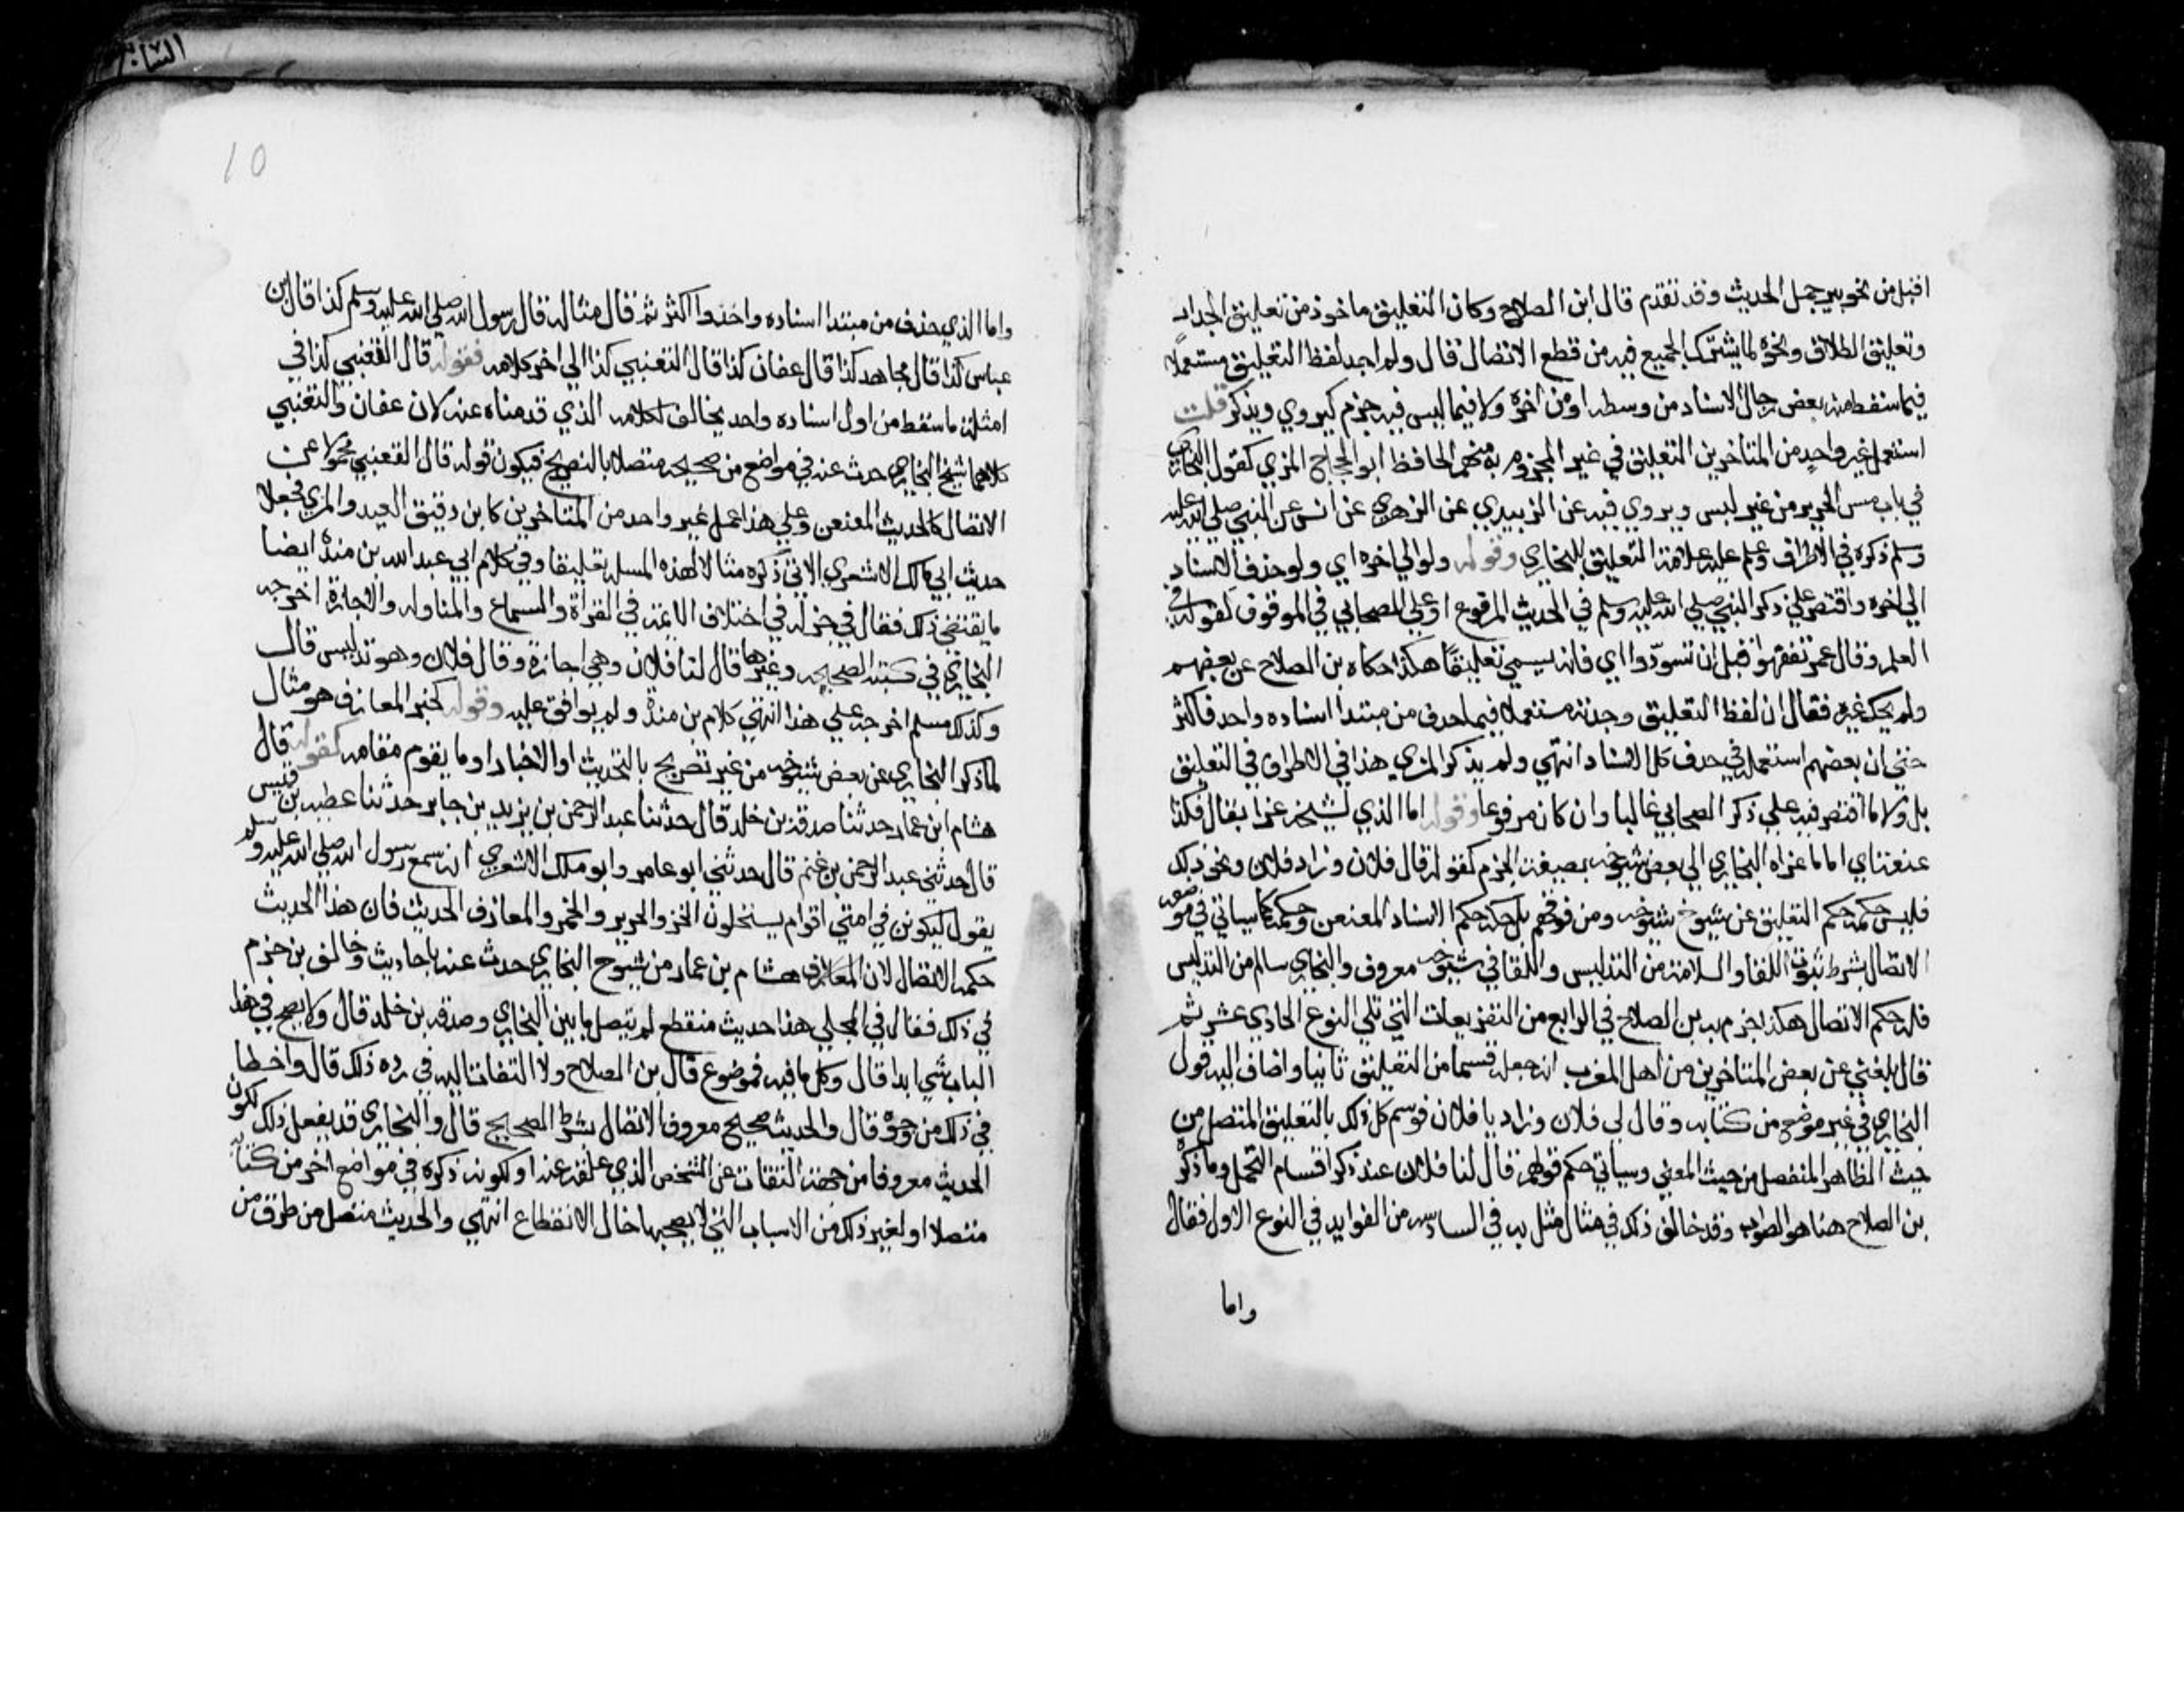 اقبل من نحو بير جمل الحديث وقد تقدم قال ابن الصلاح وكان التعليق ماخوذ من تعليق الجدار
وتعليق الطلاق ونحوه لما يشترك الجميع فيه من قطع الاتصال قال ولم اجد لفظ التعليق مستعملا
فيما سقط منه بعض رجال الاسناد من وسطه او من اخره ولا فيما ليس فيه جزم كيروي ويذكر قلت
استعمل غير واحد من المتاخرين التعليق في غير المجزوم به منهم الحافظ ابو الحجاج المزي كقول البخاري
في باب مس الحرير من غير لبس ويروي فيه عن الزبيدي عن الزهري عن انس عن النبي صلي الله عليه
وسلم ذكره في الاطراف وعلم عليه علامة التعليق للبخاري وقوله ولو الي اخره اي ولو حذف الاسناد
الي اخره واقتصر علي ذكر النبي صلي الله عليه وسلم في الحديث المرفوع او علي الصحابي في الموقوف كقوله في
العلم وقال عمر تفقهوا قبل ان تسودوا اي فانه يسمي تعليقا هكذا حكاه بن الصلاح عن بعضهم
ولم يحك غيره فقال ان لفظ التعليق وجدته مستعملا فيما حذف من مبتدا اسناده واحد فاكثر
حتي ان بعضهم استعمله في حذف كل الاسناد انتهي ولم يذكر المزي هذا في الاطراف في التعليق
بل ولا ما اقتصر فيه علي ذكر الصحابي غالبا وان كان مرفوعا وقوله اما الذي لشيخه عزا بقال فكذا
عنعنة اي اما ما عزاه البخاري الي بعض شيوخه بصيغة الجزم كقوله قال فلان وزاد فلان ونحو ذلك
فليس حكمه حكم التعليق عن شيوخ شيوخه ومن فوقهم بل حكمه حكم الاسناد المعنعن وحكمه كما سياتي في موضعه
الاتصال بشرط ثبوت اللقا والسلامة من التدليس واللقا في شيوخه معروف والبخاري سالم من التدليس
فله حكم الاتصال هكذا جزم به بن الصلاح في الرابع من التفريعات التي تلي النوع الحادي عشر ثم
قال بلغني عن بعض المتاخرين من اهل المغرب انه جعله قسما من التعليق ثانيا واضاف اليه قول
البخاري في غير موضع من كتابه وقال لي فلان وزاد يا فلان فوسم كل ذلك بالتعليق المتصل من
حيث الظاهر المنفصل من حيث المعني وسياتي حكم قولهم قال لنا فلان عند ذكر اقسام التحمل وما ذكره
بن الصلاح هنا هو الصواب وقد خالف ذلك في مثال مثل به في السادسه من الفوايد في النوع الاول فقال
واما
10
واما الذي حذف من مبتدا اسناده واحدا اكثر ثم قال مثاله قال رسول الله صلي الله عليه وسلم كذا قال ابن
عباس كذا قال مجاهد كذا قال عفان كذا قال القعنبي كذا الي اخر كلامه فقوله قال القعنبي كذا في
امثلة ما سقط من اول اسناده واحد يخالف لكلامه الذي قدمناه عنه لان عفان والقعنبي
كلاهما شيخ البخاري حدث عنه في مواضع من صحيحه متصلا بالتصريح فيكون قوله قال القعنبي محمولا علي
الاتصال كالحديث المعنعن وعلي هذا عمل غير واحد من المتاخرين كابن دقيق العيد والمزي فجعلا
حديث ابي مالك الاشعري الاتي ذكره مثالا لهذه المسله تعليقا وفي كلام ابي عبد الله بن منده ايضا
ما يقتضي ذلك فقال في جزء له في اختلاف الائمة في القراة والسماع والمناوله والاجازة اخرجه
البخاري في كتبه الصحيحه وغيرها قال لنا فلان وهي اجازة وقال فلان وهو تدليس قال
وكذلك مسلم اخرجه علي هذا انتهي كلام بن منده ولم يوافق عليه وقوله كخبر المعازف هو مثال
لما ذكر البخاري عن بعض شيوخه من غير تصريح بالتحديث او الاخبار او ما يقوم مقامه كقوله قال
هشام ابن عمار حدثنا صدقة بن خلد قال حدثنا عبد الرحمن بن يزيد بن جابر حدثنا عطيه بن قيس
قال حدثني عبد الرحمن بن غنم قال حدثني ابو عامر وابو ملك الاشعري انه سمع رسول الله صلي الله عليه وسلم
يقول ليكونن في امتي اقوام يستحلون الخز والحرير والخمر والمعازف الحديث فان هذا الحديث
حكمه الاتصال لان هشام بن عمار من شيوخ البخاري حدث عنه باحاديث وخالف بن حزم
في ذلك فقال في المحلي هذا حديث منقطع لم يتصل ما بين البخاري وصدقه بن خلد قال ولا يصح في هذا
الباب شي ابدا قال وكل ما فيه فموضوع قال بن الصلاح ولا التفات اليه في رده ذلك قال واخطا
في ذلك من وجوه قال والحديث صحيح معروف الاتصال بشرط الصحيح قال والبخاري قد يفعل ذلك لكون
الحديث معروفا من جهة الثقات عن الشخص الذي علقه عنه او لكونه ذكره في مواضع اخر من كتابه
متصلا او لغير ذلك من الاسباب التي لا يصحبها خلل الانقطاع انتهي والحديث متصل من طرق من